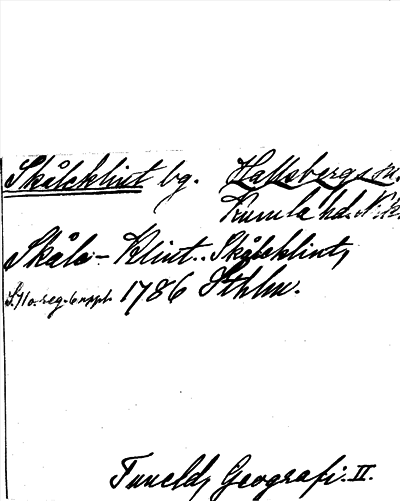 Skålcklint bg. Hallsbergs sn.
Kumla hd. Nrk.
Skålc-Klint.. Skålcklint,
1786 Sthlm.
Tuneld, Geografi. II.